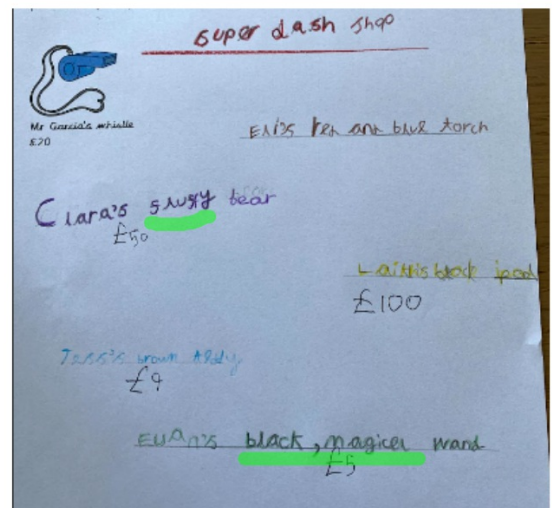 super dash shop
Mr Garcia's whistle
£20
and blue torch
Clara's bear
£50
black ipad
£100
Tess's brown teddy
£9
Euan's black, magicel wand
£5